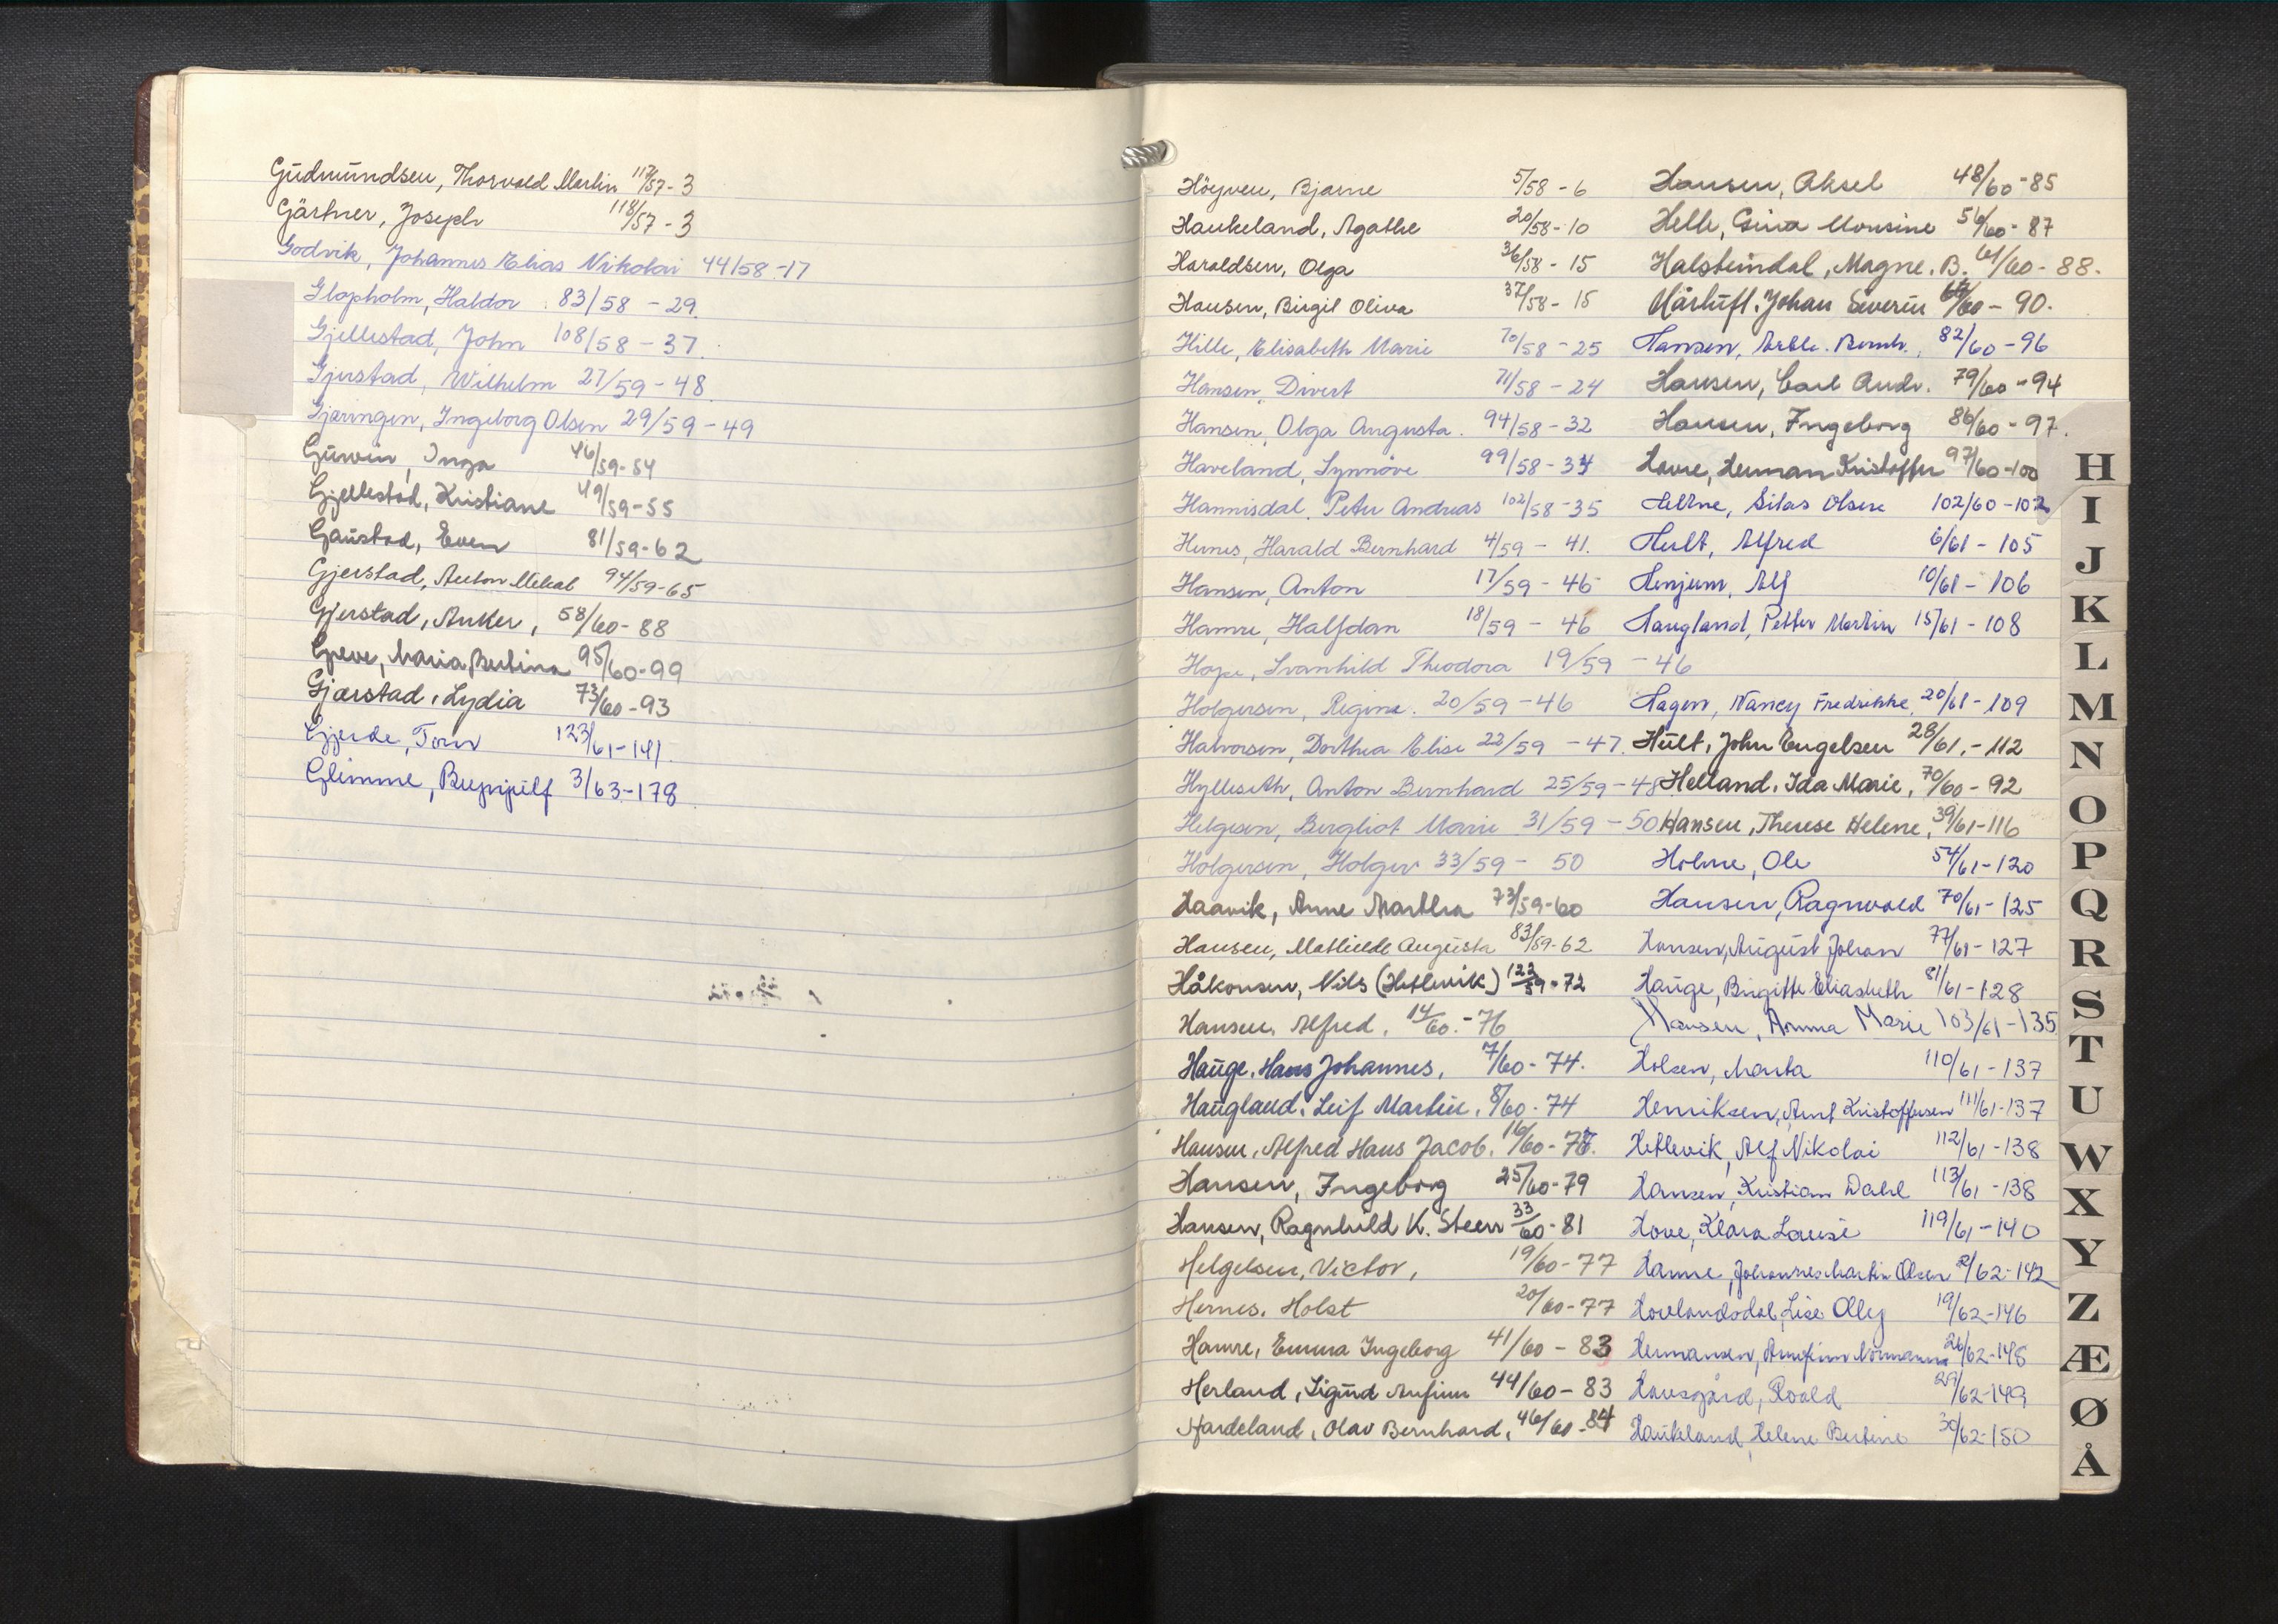 Gudmundsen, Thorvald Martin 117/57 - 3
Gärtner, Joseph 118/57 - 3
Godvik, Johannes Elias Nikolai 44/58 - 17
Glopholm, Haldor 83/58 - 29.
Gjellestad, John 108/58 - 37.
Gjerstad, Wilhelm 27/59 - 48.
Gjæringen, Ingeborg Olsen 29/59 - 49
Inga 46/59 - 54
Gjellestad, Kristiane 49/59 - 55
Gaustad, Even 81/59 - 62
Gjerstad, Anton Mikal 94/59 - 65
Gjerstad, Anker, 58/60 - 88
Greve, Maria Bertina 95/60 - 99
Gjærstad, Lydia 73/60 - 93
Gjerde, Tom 123/61 - 141.
Glimme, Brynjulf 3/63 - 178.
Höyven, Bjarne 5/58 - 6
Haukeland, Agathe 20/58 - 10
Haraldsen, Olga 36/58 - 15
Hansen, Birgit Oliva 37/58 - 15
Hille, Elisabeth Marie 70/58 - 25
Hansen, Divert 71/58 - 24
Hansen, Olga Augusta. 94/58 - 32
Haveland, Synnöve 99/58 - 34
Hannisdal, Peter Andreas 102/58 - 35
Hernes, Harald Bernhard 4/59 - 41.
Hansen, Anton 17/59 - 46
Hamre, Halfdan 18/59 - 46
Hope, Svanhild Theodora 19/59 - 46
Holgersen, Regine. 20/59 - 46
Halvorsen, Dorthea Elise 22/59 - 47.
Hylleseth, Anton Bernhard 25/59 - 48
Helgesen, Bergliot Marie 31/59 - 50
Holgersen, Holger 33/59 - 50
Haavik, Anne Martha 73/59 - 60
Hansen, Mathilde Augusta 83/59 - 62
Håkonsen, Nils (Hetlevik) 123/59 - 72
Hansen, Alfred, 14/60. - 76
Hauge, Hans Johannes, 7/60 - 74.
Haugland, Leif Martin, 8/60 - 74
Hansen, Alfred Hans Jacob, 16/60 -
Hansen, Ingeborg 25/60 - 79
Hansen, Ragnhild K. Steen 33/60 - 81
Helgelsen, Victor, 19/60 - 77
Hernes, Holst 20/60 - 77
Hamre, Emma Ingeborg 41/60 - 83
Herland, Sigurd Arnfinn 44/60 - 83
Hardeland, Olav Bernhard, 46/60 - 84
Hansen, Aksel 48/60 - 85
Helle, Gina Monsine 56/60 - 87
Halsteindal, Magne. B. 61/60 - 88.
Johan Severin /60 - 90.
Hansen, Bernh., 82/60 - 96
Hansen, Carl Andr. 79/60 - 94
Hansen, Ingeborg 86/60 - 97.
Hovre, Herman Kristoffer 97/60 - 100
Silas Olsen 102/60 - 102
Hult, Alfred 6/61 - 105
Henjum, Alf 10/61 - 106
Haugland, Petter Martin 15/61 - 108
Hagen, Nancy Fredrikke, 20/61 - 109
Hult, John Engelsen 28/61. - 112
Helland, Ida Marie, 70/60 - 92
Hansen, Therese Helene, 39/61 - 116
Holme, Ole 54/61 - 120
Hansen, Ragnvald 70/61 - 125
Hansen, August Johan 77/61 - 127
Hauge, Birgitte Eliasbeth 81/61 - 128
Hansen, Anna Marie 103/61 - 135
Holsen, Marta 110/61 - 137
Henriksen, Arnt Kristoffersen 111/61 - 137
Hetlevik, Alf Nikolai 112/61 - 138
Hansen, Kristian Dahl 113/61 - 138
Hove, Klara Louise 119/61 - 140
Johannes Martin Olsen /62 - 142
Hovlandsdal, Lise Olly 19/62 - 146
Hermansen, Arnfinn Normann 26/62 - 148
Havsgård, Roald 29/62 - 149
Haukeland, Helene Bertine 30/62 - 150
H
I
J
K
L
M
N
O
P
Q
R
S
T
U
W
X
Y
Z
Æ
Ø
Å